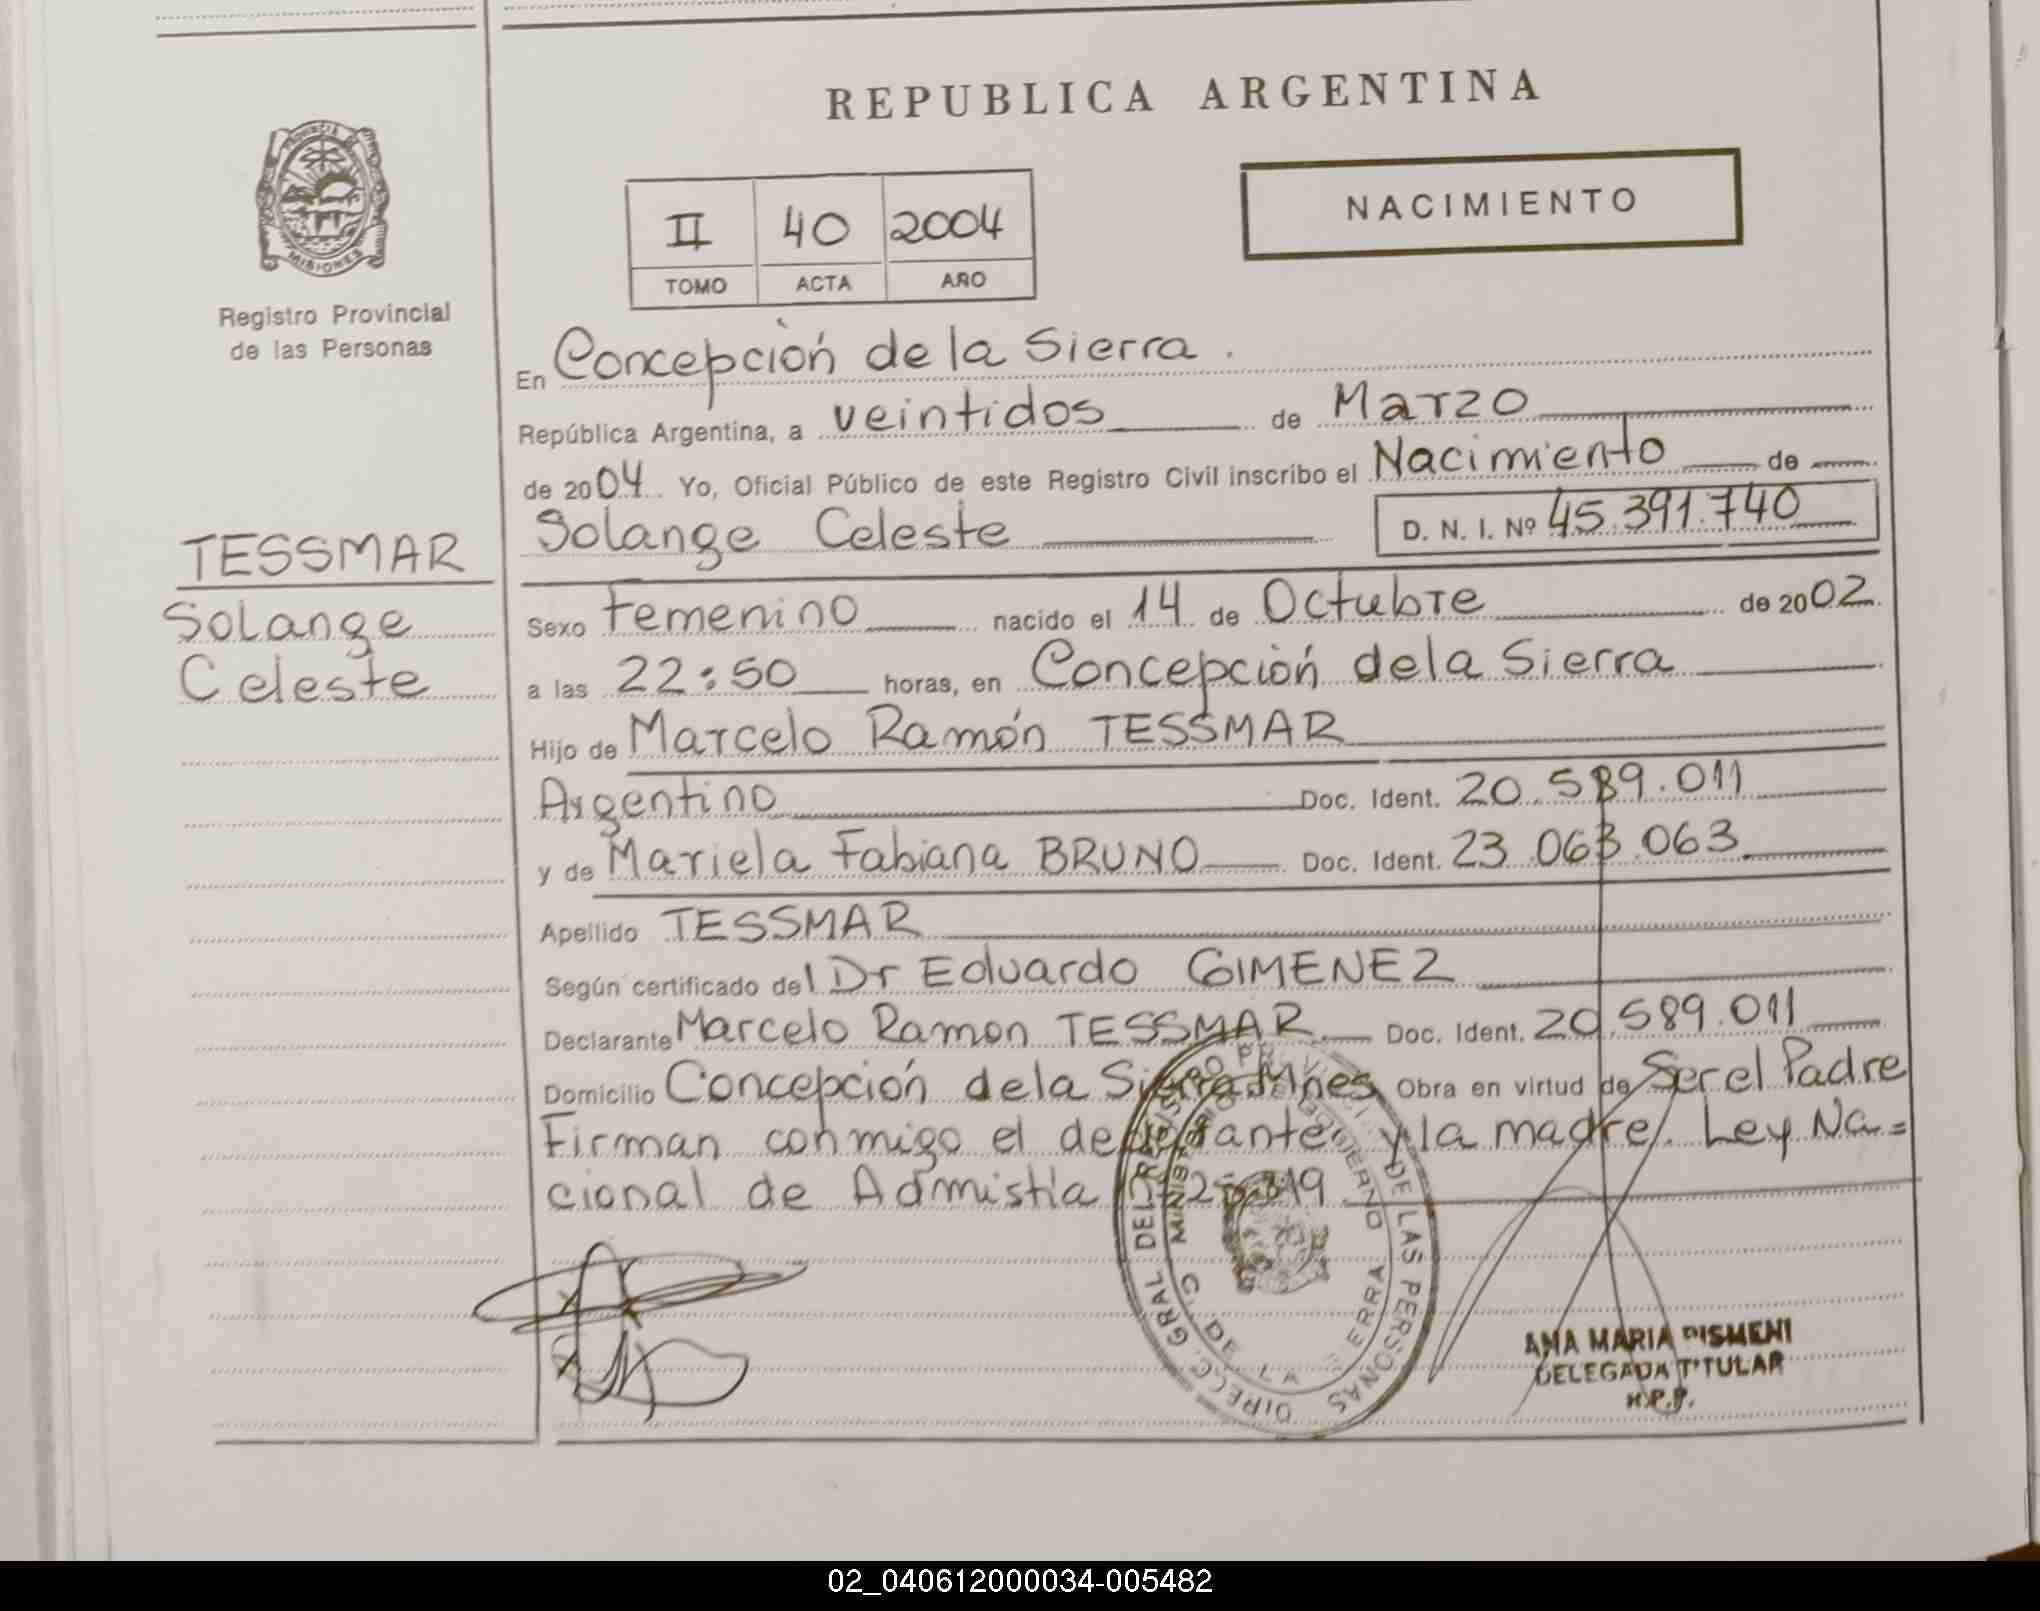 REPUBLICA ARGENTINA
PROVINCIA DE MISIONES
Registro Provincial
de las Personas
II 40 2004
TOMO ACTA AÑO
NACIMIENTO
En Concepción de la Sierra.
República Argentina, a veintidos de Marzo
de 2004 Yo, Oficial Público de este Registro Civil inscribo el Nacimiento de
Solange Celeste D. N. I. Nº 45.391.740
TESSMAR
Solange
Celeste
Sexo Femenino nacido el 14 de Octubre de 2002
a las 22:50 horas, en Concepción dela Sierra
Hijo de Marcelo Ramón TESSMAR
Argentino Doc. Ident. 20.589.011
y de Mariela Fabiana BRUNO Doc. Ident. 23.063.063
Apellido TESSMAR
Según certificado del Dr Eduardo GIMENEZ
Declarante Marcelo Ramon TESSMAR Doc. Ident. 20.589.011
Domicilio Concepción dela Sierra Mnes Obra en virtud de Ser el Padre
Firman conmigo el declarante y la madre. Ley Na=
cional de Admistía 25.819
DIRECC. GRAL DEL REGISTRO PROVINCIAL DE LAS PERSONAS
MINISTERIO DE GOBIERNO
C. DE LA SIERRA
ANA MARIA PISMENI
DELEGADA TITULAR
R.P.P.
02_040612000034-005482